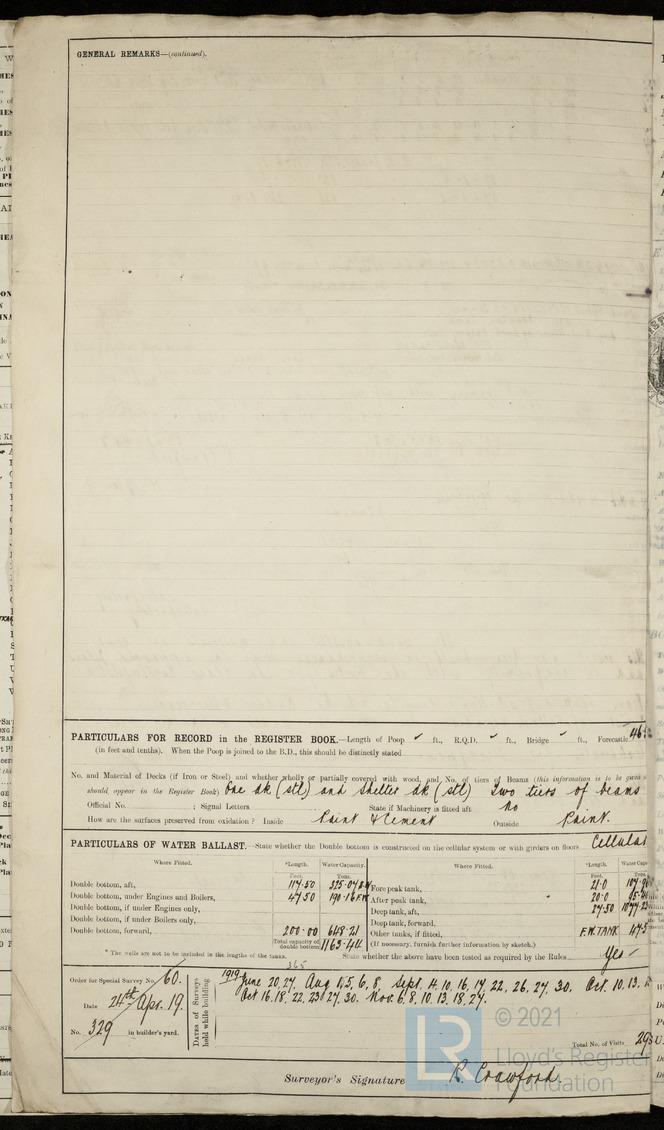 GENERAL REMARKS—(continued).
PARTICULARS FOR RECORD in the REGISTER BOOK.—Length of Poop ✓ ft., R.Q.D. ✓ ft., Bridge ✓ ft., Forecastle
(in feet and tenths). When the Poop is joined to the B.D., this should be distinctly stated
No. and Material of Decks (if Iron or Steel) and whether wholly or partially covered with wood, and No. of tiers of Beams (this information is to be given
should appear in the Register Book) One dk (stl) and Shelter dk (stl) Two tiers of beams
Official No. ; Signal Letters State if Machinery is fitted aft No
How are the surfaces preserved from oxidation? Inside Paint & Cement Outside Paint.
PARTICULARS OF WATER BALLAST.—State whether the Double bottom is constructed on the cellular system or with girders on floors Cellular
Where Fitted. *Length. Water Capacity. Where Fitted. *Length. Water Capa
Feet. Tons. Feet. Tons.
Double bottom, aft, 117.50 325.07 Fore peak tank, 21.0
Double bottom, under Engines and Boilers, 47.50 190.16 F.W. After peak tank, 20.0
Double bottom, if under Engines only, Deep tank, aft, 27.50
Double bottom, if under Boilers only, Deep tank, forward,
Double bottom, forward, 200.00 648.21 Other tanks, if fitted, F.W. TANK
Total capacity of double bottom 1163.44 (If necessary, furnish further information by sketch.)
* The wells are not to be included in the lengths of the tanks. State whether the above have been tested as required by the Rules Yes
365
Order for Special Survey No. 60.
Date 24th Apr. 19.
No. 329 in builder's yard.
Dates of Surveys held while building
1919 June 20, 27, Aug 1, 5, 6, 8, Sept. 4, 10, 16, 17, 22, 26, 27, 30. Oct. 10, 13,
Oct 16, 18, 22, 23, 27, 30. Nov. 6, 8, 10, 13, 18, 27.
Total No. of Visits 29
Surveyor's Signature R. Crawford
© 2021
LR
Lloyd's Register
Foundation